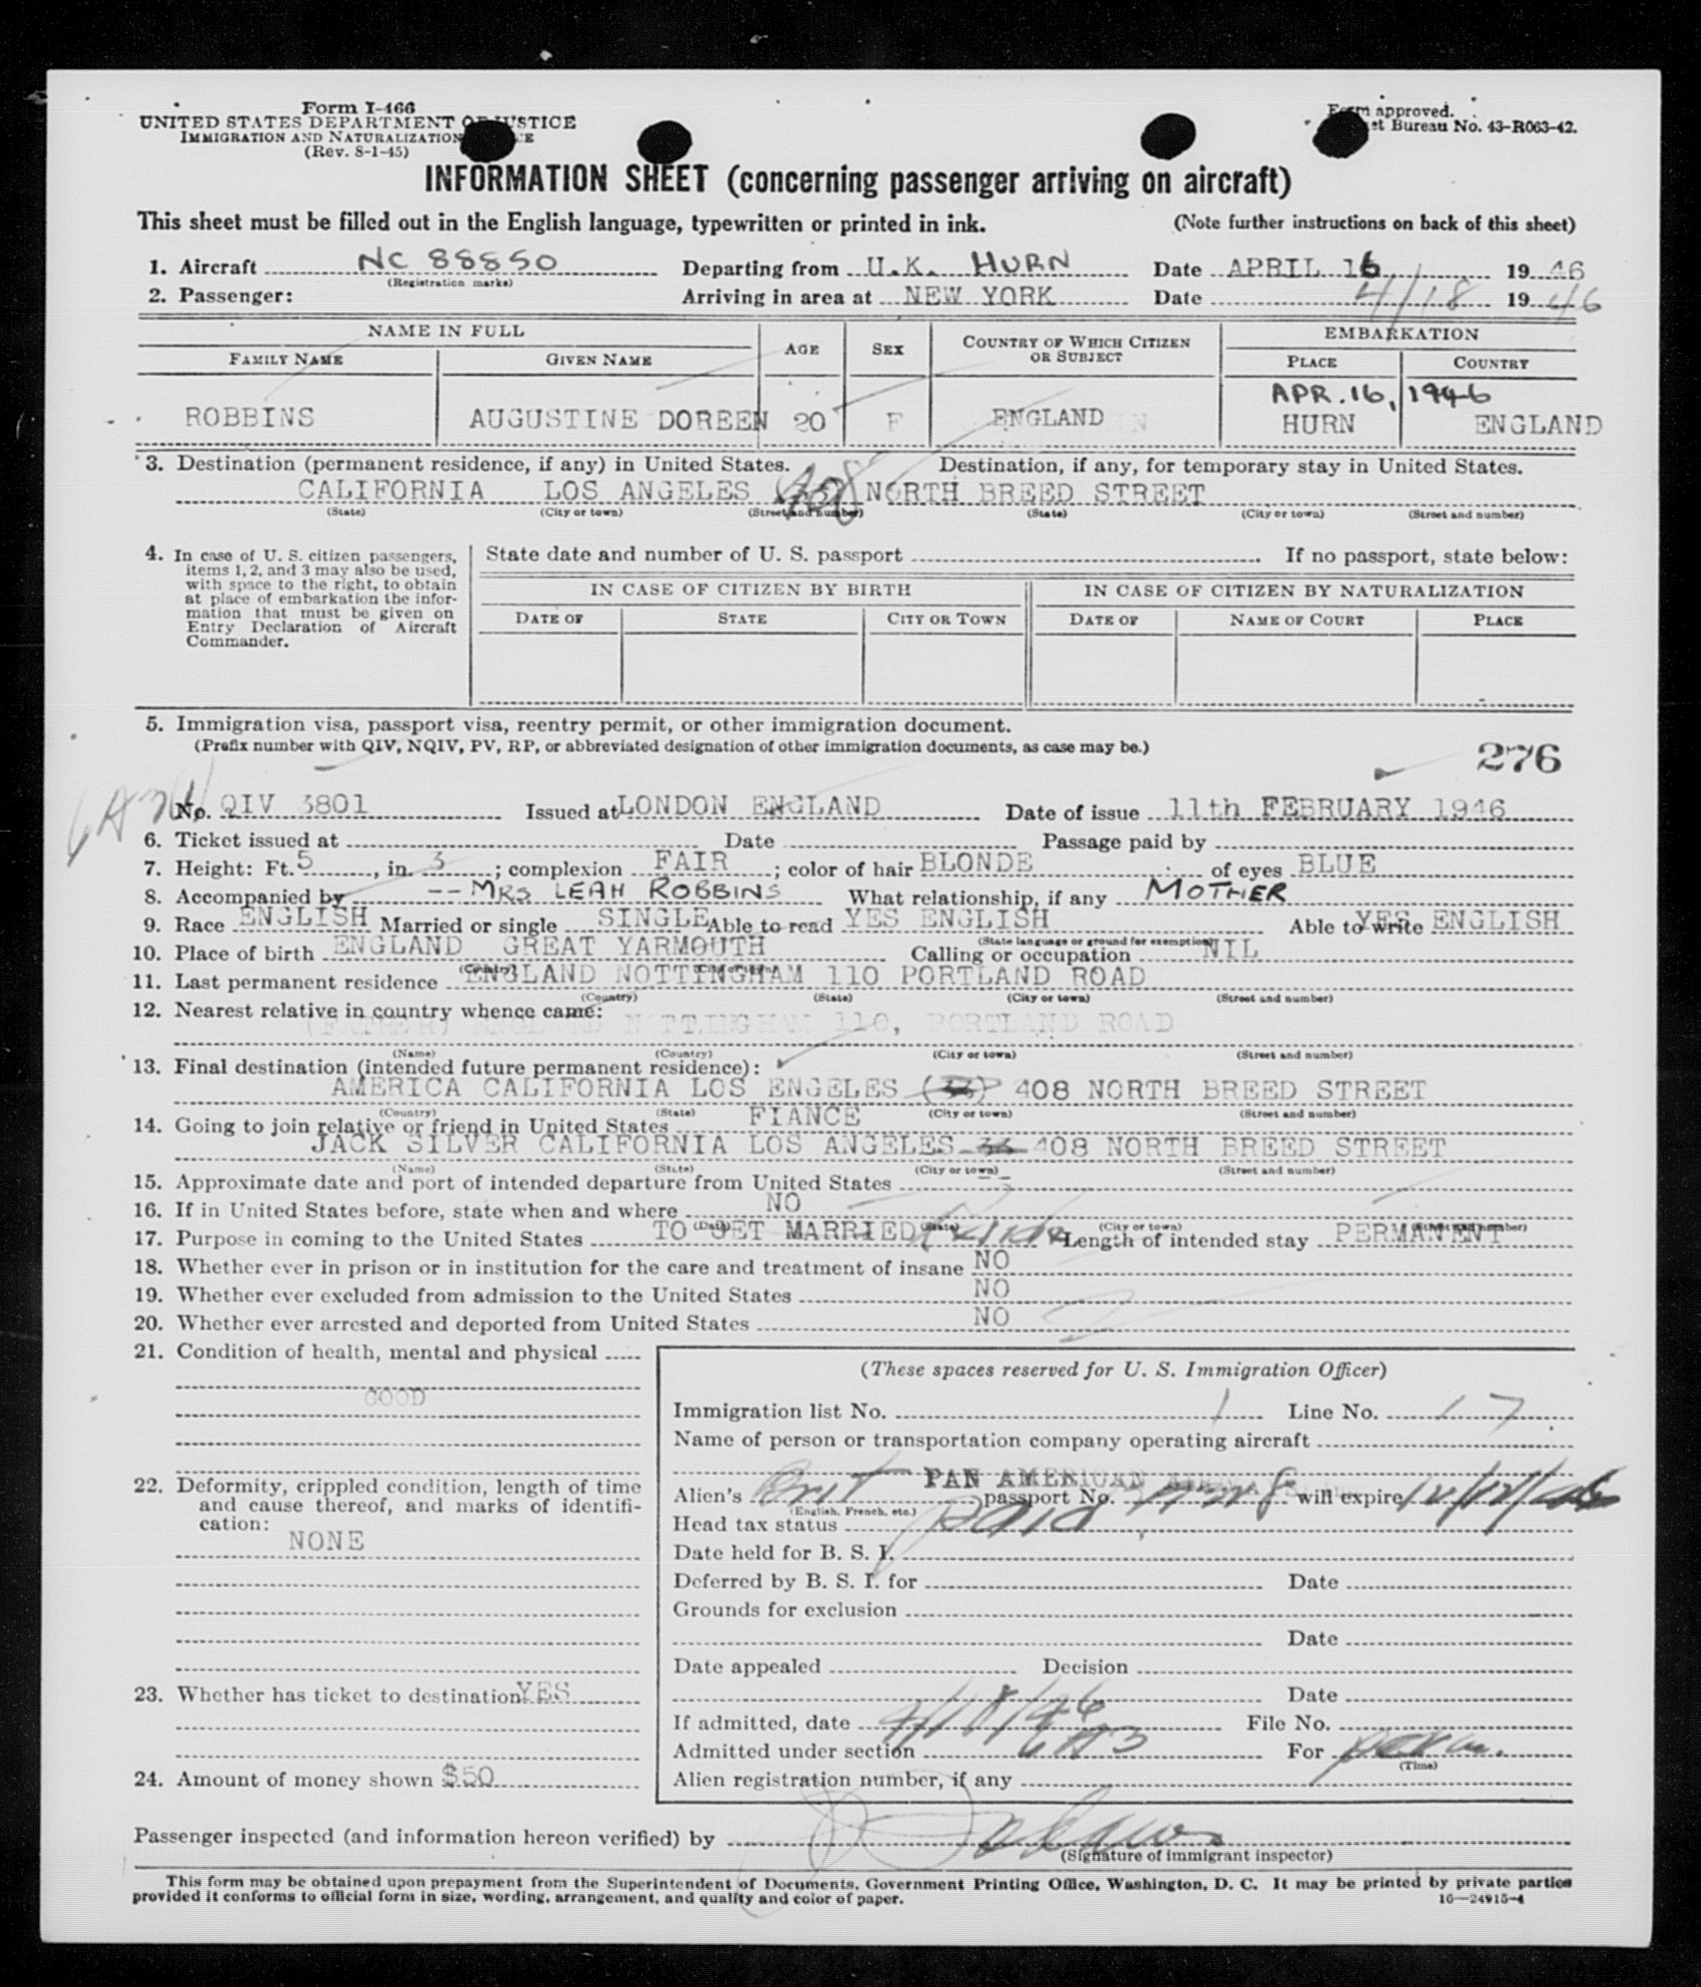 Form I-466
UNITED STATES DEPARTMENT OF JUSTICE
IMMIGRATION AND NATURALIZATION
(Rev. 8-1-45)
Form approved.
Bureau No. 43-R063-42.
INFORMATION SHEET (concerning passenger arriving on aircraft)
This sheet must be filled out in the English language, typewritten or printed in ink. (Note further instructions on back of this sheet)
1. Aircraft NC 88850 Departing from U.K. HURN Date APRIL 16 1946
(Registration marks)
2. Passenger: Arriving in area at NEW YORK Date 4/18 1946
NAME IN FULL AGE SEX COUNTRY OF WHICH CITIZEN OR SUBJECT EMBARKATION
FAMILY NAME GIVEN NAME PLACE COUNTRY
APR. 16, 1946
ROBBINS AUGUSTINE DOREEN 20 F ENGLAND HURN ENGLAND
3. Destination (permanent residence, if any) in United States. Destination, if any, for temporary stay in United States.
CALIFORNIA LOS ANGELES 408 NORTH BREED STREET
(State) (City or town) (Street and number) (State) (City or town) (Street and number)
4. In case of U. S. citizen passengers, items 1, 2, and 3 may also be used, with space to the right, to obtain at place of embarkation the information that must be given on Entry Declaration of Aircraft Commander.
State date and number of U. S. passport If no passport, state below:
IN CASE OF CITIZEN BY BIRTH IN CASE OF CITIZEN BY NATURALIZATION
DATE OF STATE CITY OR TOWN DATE OF NAME OF COURT PLACE
5. Immigration visa, passport visa, reentry permit, or other immigration document.
(Prefix number with QIV, NQIV, PV, RP, or abbreviated designation of other immigration documents, as case may be.)
276
No. QIV 3801 Issued at LONDON ENGLAND Date of issue 11th FEBRUARY 1946
6. Ticket issued at Date Passage paid by
7. Height: Ft. 5, in. 3; complexion FAIR; color of hair BLONDE of eyes BLUE
8. Accompanied by -- MRS LEAH ROBBINS What relationship, if any MOTHER
9. Race ENGLISH Married or single SINGLE Able to read YES ENGLISH Able to write YES ENGLISH
(State language or ground for exemption)
10. Place of birth ENGLAND GREAT YARMOUTH Calling or occupation NIL
(Country) (City or town)
11. Last permanent residence ENGLAND NOTTINGHAM 110 PORTLAND ROAD
(Country) (State) (City or town) (Street and number)
12. Nearest relative in country whence came:
(FATHER) ENGLAND NOTTINGHAM 110, PORTLAND ROAD
(Name) (Country) (City or town) (Street and number)
13. Final destination (intended future permanent residence):
AMERICA CALIFORNIA LOS ENGELES 408 NORTH BREED STREET
(Country) (State) (City or town) (Street and number)
14. Going to join relative or friend in United States FIANCE
JACK SILVER CALIFORNIA LOS ANGELES 408 NORTH BREED STREET
(Name) (State) (City or town) (Street and number)
15. Approximate date and port of intended departure from United States --
16. If in United States before, state when and where NO
(Date) (State) (City or town) (Street and number)
17. Purpose in coming to the United States TO GET MARRIED Length of intended stay PERMANENT
18. Whether ever in prison or in institution for the care and treatment of insane NO
19. Whether ever excluded from admission to the United States NO
20. Whether ever arrested and deported from United States NO
21. Condition of health, mental and physical
GOOD
22. Deformity, crippled condition, length of time and cause thereof, and marks of identification:
NONE
23. Whether has ticket to destination YES
24. Amount of money shown $50
(These spaces reserved for U. S. Immigration Officer)
Immigration list No. 1 Line No. 17
Name of person or transportation company operating aircraft
PAN AMERICAN
Alien's Brit passport No. will expire
(English, French, etc.)
Head tax status Paid
Date held for B. S. I.
Deferred by B. S. I. for Date
Grounds for exclusion
Date
Date appealed Decision
Date
If admitted, date 4/18/46 File No.
Admitted under section 6A3 For perm.
(Time)
Alien registration number, if any
Passenger inspected (and information hereon verified) by
(Signature of immigrant inspector)
This form may be obtained upon prepayment from the Superintendent of Documents, Government Printing Office, Washington, D. C. It may be printed by private parties
provided it conforms to official form in size, wording, arrangement, and quality and color of paper. 16—24915-4